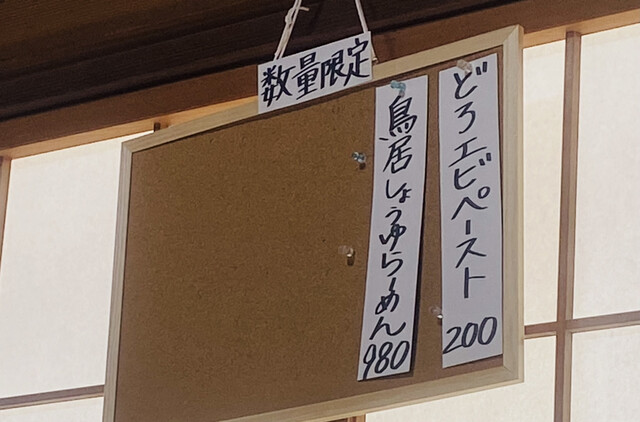 数量限定
どろエビペースト 200
鳥居しょうゆらーめん 980